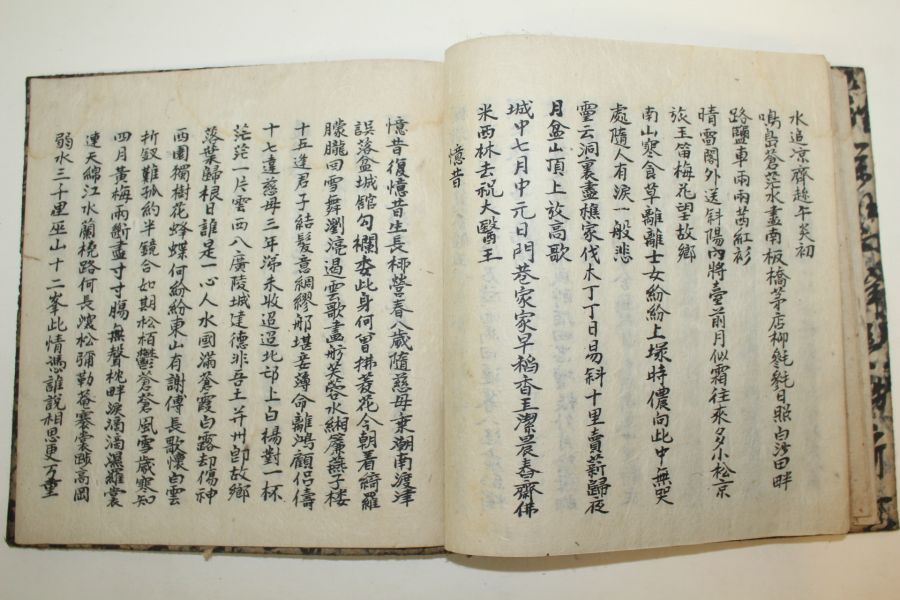 水追凉齊趁午炎初
鳴島蒼茫水盡南板橋茅店柳毿毿日照白沙田畔
路鹽車兩兩茜紅衫
晴雷閣外送斜陽內將臺前月似霜往來多小松京
旅玉笛梅花望故鄉
南山寒食草離離士女紛紛上塚時儂向此中無哭
處隨人有淚一般悲
靈云洞裏盡樵家伐木丁丁日易斜十里賣薪歸夜
月盆山頂上放高歌
城中七月中元日門巷家家早稻香玉潔晨舂齋佛
米西林去祝大醫王
憶昔
憶昔復憶昔生長柳營春八歲隨慈母乘潮南渡津
誤落盆城舘勾欄委此身何曾拂菱花今朝着綺羅
朦朧回雪舞瀏湸遏雲歌畵舫芙蓉水緗簾燕子樓
十五逢君子結髮意綢繆那堪妾薄命離鴻顧侶儔
十七違慈母三年淚未收迢迢北邙上白楊對一杯
茫茫一片雲西八廣陵城建德非吾土并州卽故鄉
落葉歸根日誰是一心人水國滿蒼霞白露却傷神
西園獨樹花蜂蝶何紛紛東山有謝傅長歌懷白雲
折釵難孤約半鏡合如期松栢鬱蒼蒼風雪歲寒知
四月黃梅雨斷盡寸寸腸無聲枕畔淚滴滴濕羅裳
連天綿江水蘭橈路何長懷松彌勒菴褰裳陟高岡
弱水三千里巫山十二峯此情憑誰說相思更万重